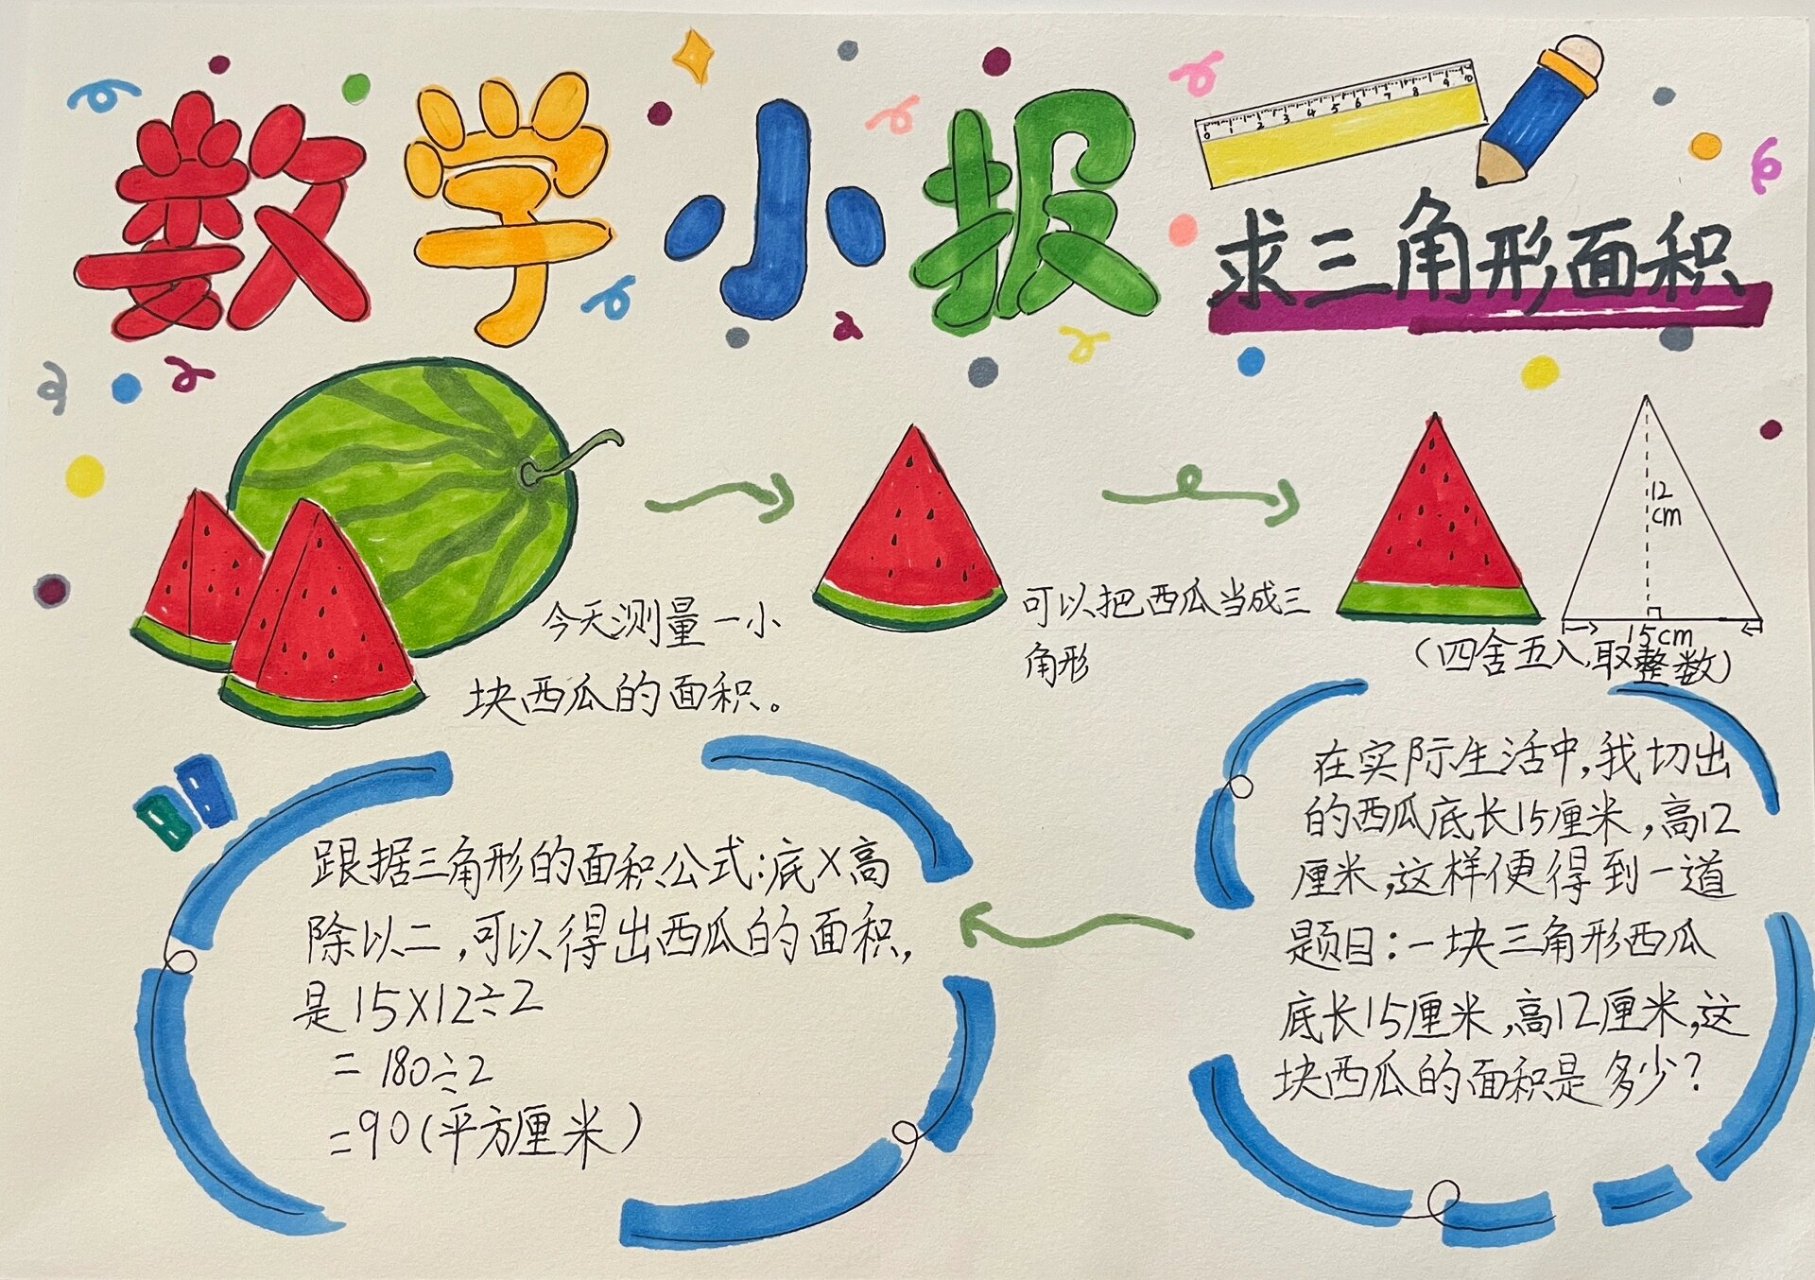 数学小报
0 1 2 3 4 5 6 7 8 9 10
求三角形面积
今天测量一小
块西瓜的面积。
可以把西瓜当成三
角形
12
cm
15cm
（四舍五入,取整数）
在实际生活中,我切出
的西瓜底长15厘米,高12
厘米,这样便得到一道
题目:一块三角形西瓜
底长15厘米,高12厘米,这
块西瓜的面积是多少?
跟据三角形的面积公式:底×高
除以二,可以得出西瓜的面积,
是15×12÷2
=180÷2
=90(平方厘米)